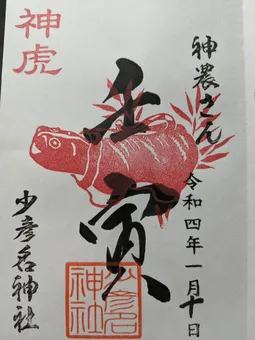 神虎
神農さん
壬寅
令和四年一月十日
少彦名神社
少彦名
神社